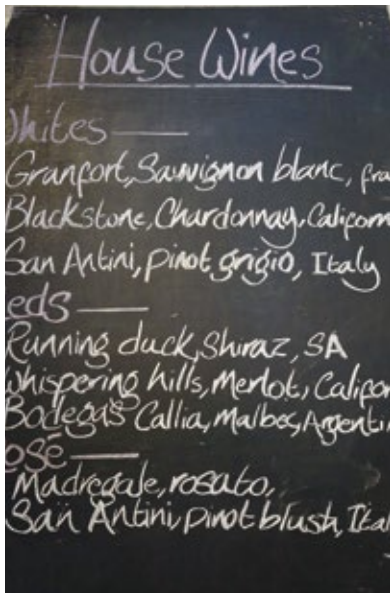 House Wines
hites
Granfort, Sauvignon blanc, fra
Blackstone, Chardonnay, Californ
San Antini, pinot grigio, Italy
eds
Running duck, Shiraz, SA
Whispering hills, Merlot, Califor
Bodegas Callia, malbec, Argenti
osé
Madregale, rosato,
San Antini, pinot blush, Ital